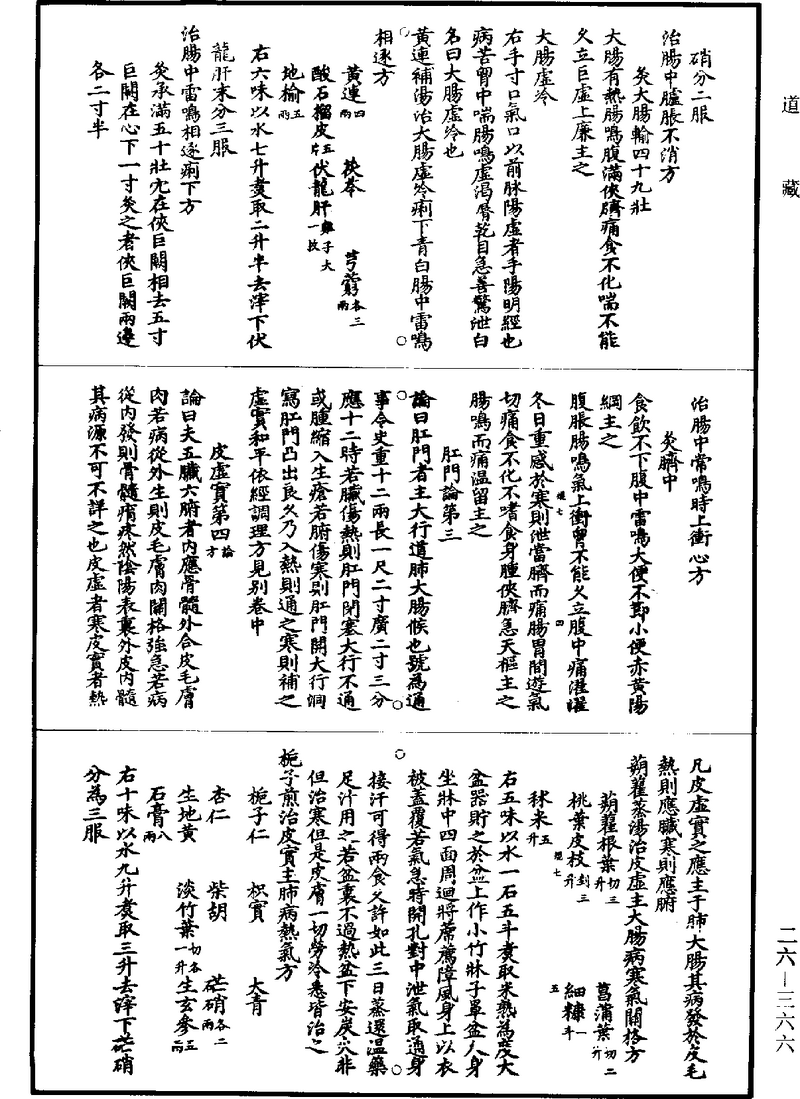 道藏
硝分二服
治腸中臚脹不消方
灸大腸輸四十九壯
大腸有熱腸鳴腹滿俠臍痛食不化喘不能
久立巨虛上廉主之
大腸虛冷
右手寸口氣口以前脉陽虛者手陽明經也
病苦胷中喘腸鳴虛渴脣乾目急善驚泄白
名曰大腸虛冷也
黃連補湯治大腸虛冷痢下青白腸中雷鳴
相逐方
黃連四兩 茯苓 芎藭各三兩
酸石榴皮五片 伏龍肝雞子大一枚
地榆五兩
右六味以水七升煑取二升半去滓下伏
龍肝末分三服
治腸中雷鳴相逐痢下方
灸承滿五十壯穴在俠巨闕相去五寸
巨闕在心下一寸灸之者俠巨闕兩邊
各二寸半
治腸中常鳴時上衝心方
灸臍中
食飲不下腹中雷鳴大便不節小便赤黃陽
綱主之
腹脹腸鳴氣上衝胷不能久立腹中痛濯濯
冬日重感於寒則泄當臍而痛腸胃間遊氣
切痛食不化不嗜食身腫俠臍急天樞主之
腸鳴而痛溫留主之
肛門論第三
論曰肛門者主大行道肺大腸候也號為通
事令史重十二兩長一尺二寸廣二寸三分
應十二時若臟傷熱則肛門閉塞大行不通
或腫縮入生瘡若腑傷寒則肛門開大行洞
寫肛門凸出良久乃入熱則通之寒則補之
虛實和平依經調理方見别卷中
皮虛實第四論方
論曰夫五臟六腑者內應骨髓外合皮毛膚
肉若病從外生則皮毛膚肉關格強急若病
從內發則骨髓痟疼然陰陽表裏外皮內髓
其病源不可不詳之也皮虛者寒皮實者熱
凡皮虛實之應主于肺大腸其病發於皮毛
熱則應臟寒則應腑
蒴藋蒸湯治皮虛主大腸病寒氣關格方
蒴藋根葉切三升 菖蒲葉切二升
桃葉皮枝剉三升 細糠一斗
秫米五升
右五味以水一石五斗煑取米熟為度大
盆器貯之於盆上作小竹牀子罩盆人身
坐牀中四面周迴將席薦障風身上以衣
被蓋覆若氣急時開孔對中泄氣取通身
接汗可得兩食久許如此三日蒸還溫藥
足汁用之若盆裏不過熱盆下安炭火非
但治寒但是皮膚一切勞冷悉皆治之
梔子煎治皮實主肺病熱氣方
梔子仁 枳實 大青
杏仁 柴胡 芒硝各二兩
生地黃 淡竹葉切各一升 生玄參五兩
石膏八兩
右十味以水九升煑取三升去滓下芒硝
分為三服
二六—三六六